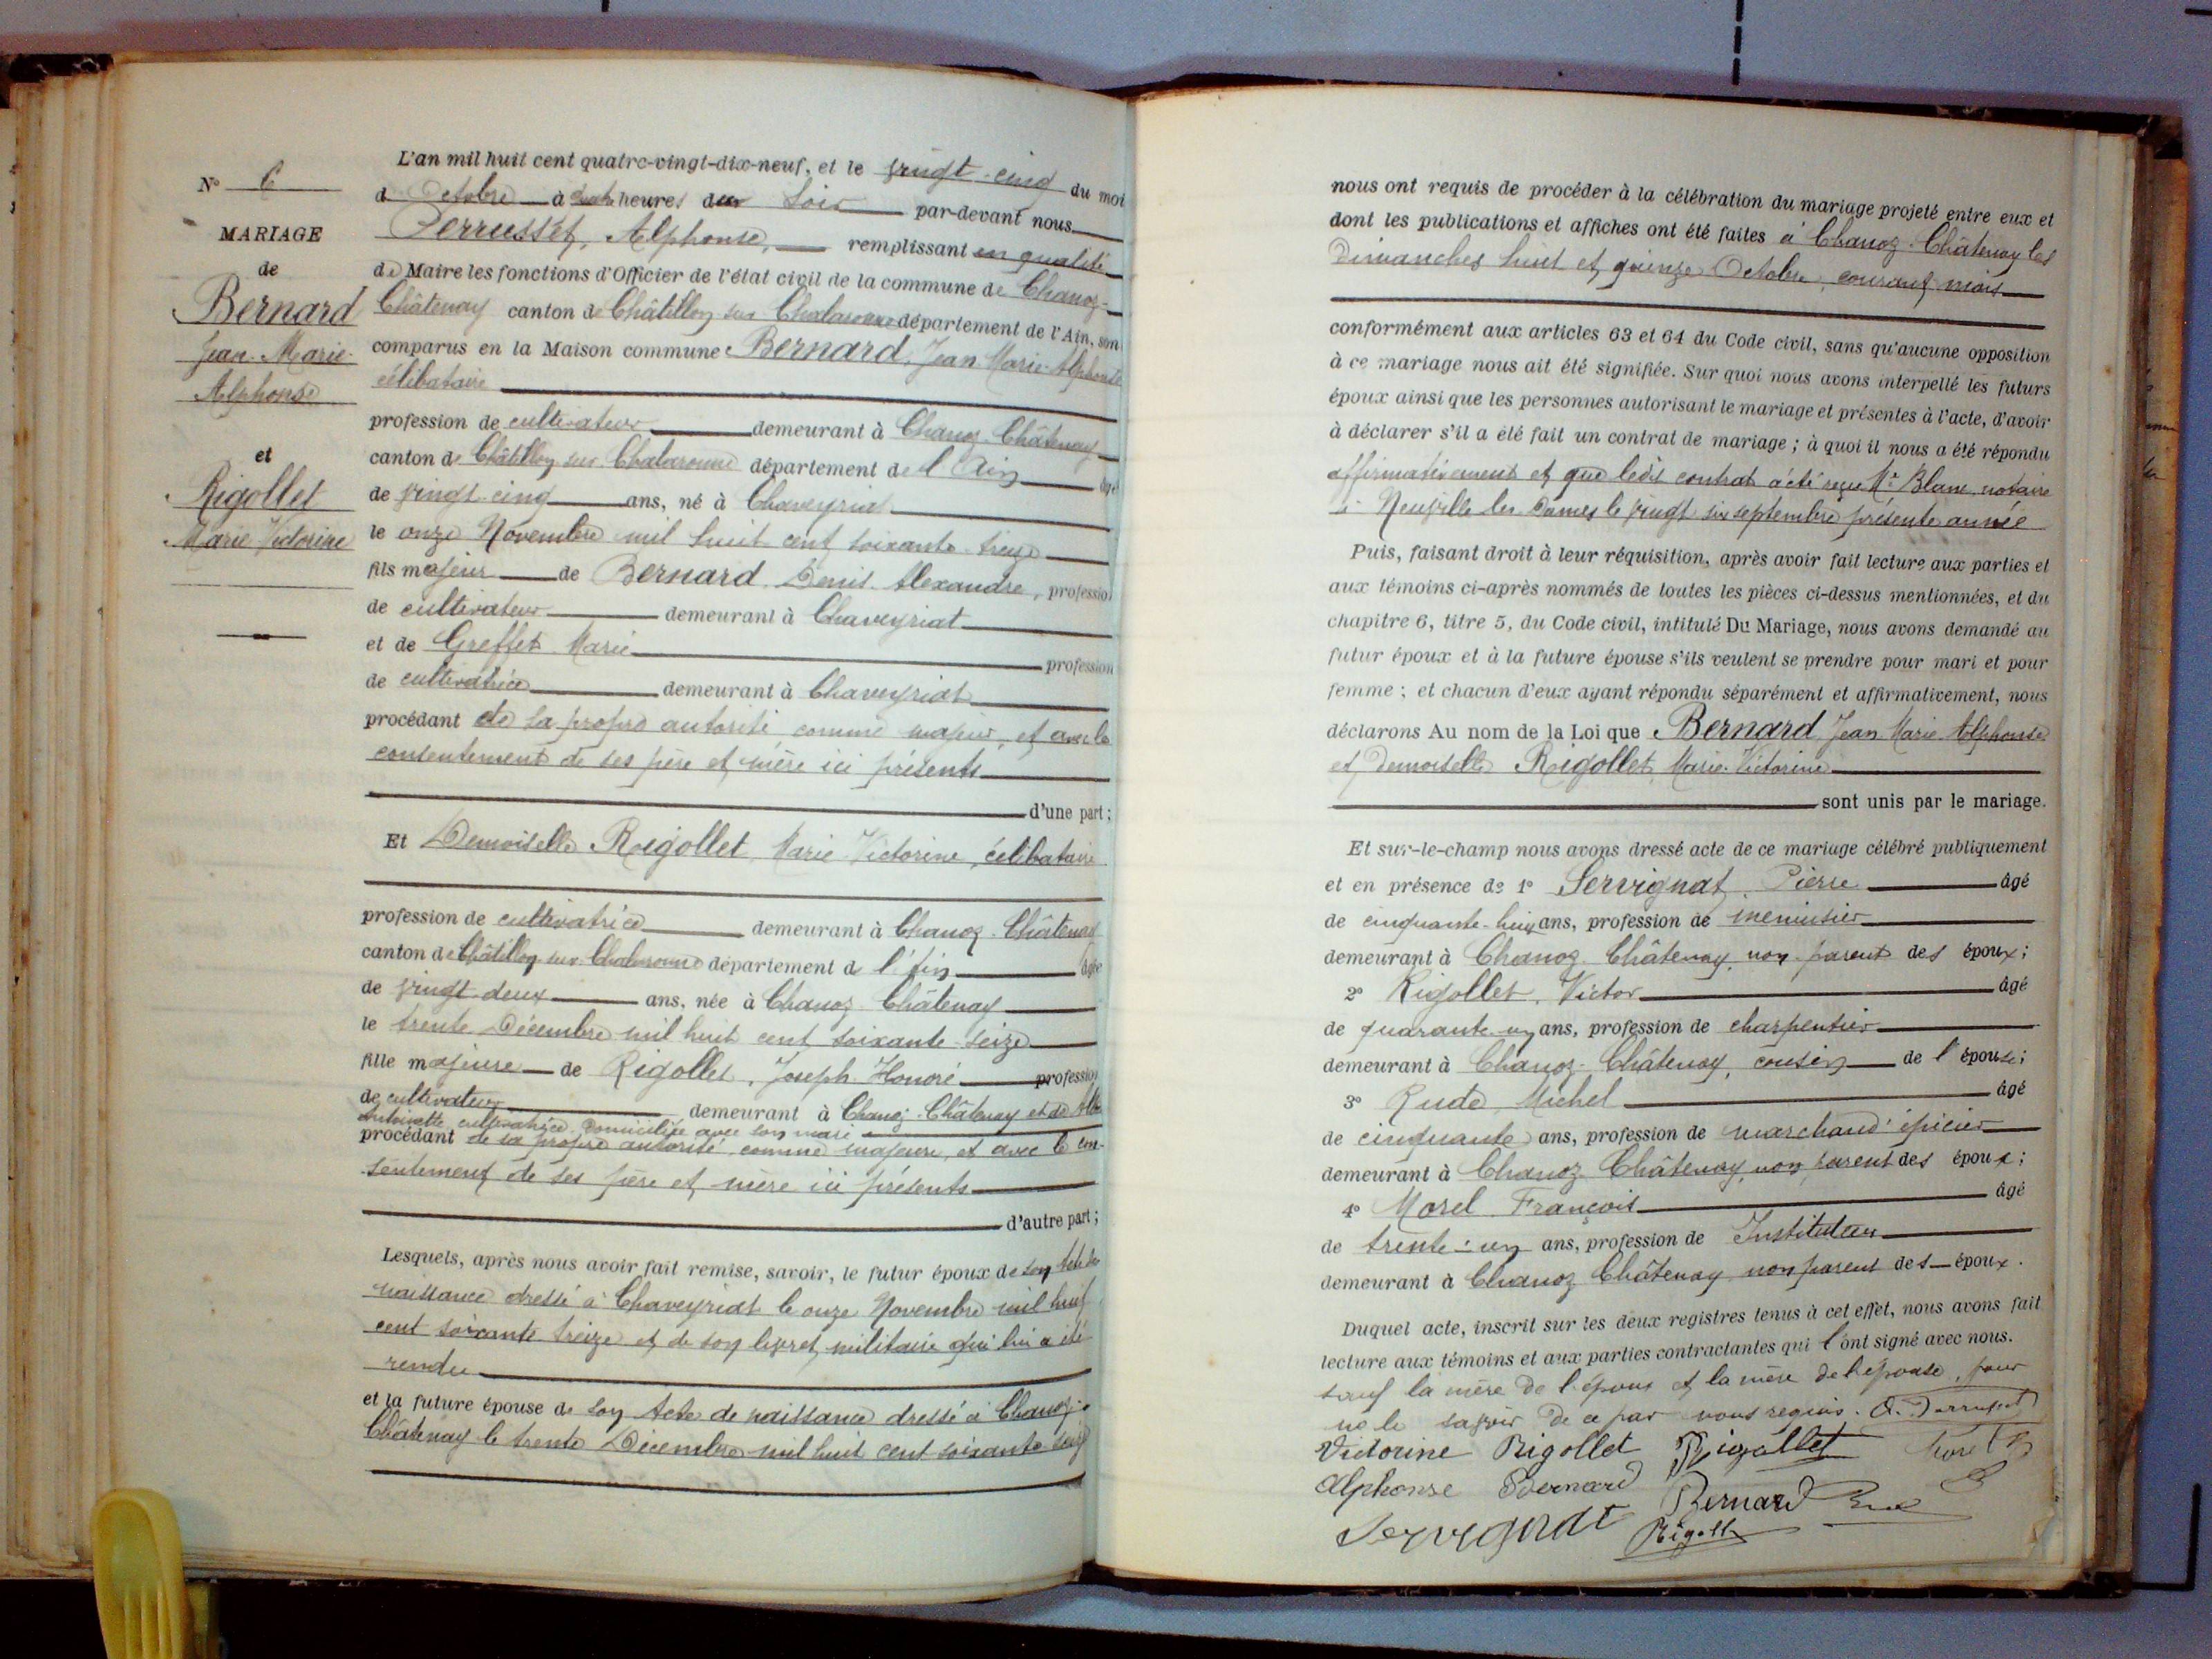 N° 6
MARIAGE
de
Bernard
Jean-Marie-
Alphonse
et
Rigollet
Marie Victorine
L'an mil huit cent quatre-vingt-dix-neuf, et le vingt-cinq du moi
d Octobre à quatre heures du Soir par-devant nous
Perrusset, Alphonse, remplissant en qualité
de Maire les fonctions d'Officier de l'état civil de la commune de Chanoz-
Châtenay canton de Châtillon sur Chalaronne département de l'Ain, son
comparus en la Maison commune Bernard, Jean Marie-Alphonse
célibataire
profession de cultivateur demeurant à Chanoz-Châtenay
canton de Châtillon sur Chalaronne département de l'Ain âgé
de vingt-cinq ans, né à Chaveyriat
le onze Novembre mil huit cent soixante-treize
fils majeur de Bernard Denis-Alexandre, profession
de cultivateur demeurant à Chaveyriat
et de Greffet Marie profession
de cultivatrice demeurant à Chaveyriat
procédant de sa propre autorité comme majeur, et avec le
consentement de ses père et mère ici présents
d'une part;
Et Demoiselle Rigollet, Marie Victorine, célibataire
profession de cultivatrice demeurant à Chanoz-Châtenay
canton de Châtillon sur Chalaronne département de l'Ain âgée
de vingt-deux ans, née à Chanoz-Châtenay
le trente Décembre mil huit cent soixante-seize
fille majeure de Rigollet, Joseph-Honoré profession
de cultivateur demeurant à Chanoz-Châtenay et de
Antoinette cultivatrice, domiciliée avec son mari
procédant de sa propre autorité, comme majeure, et avec le con-
sentement de ses père et mère ici présents
d'autre part;
Lesquels, après nous avoir fait remise, savoir, le futur époux de son Acte de
naissance dressé à Chaveyriat le onze Novembre mil huit
cent soixante treize et de son livret militaire qui lui a été
rendu
et la future épouse de son Acte de naissance dressé à Chanoz-
Châtenay le trente Décembre mil huit cent soixante-seize
nous ont requis de procéder à la célébration du mariage projeté entre eux et
dont les publications et affiches ont été faites à Chanoz-Châtenay les
Dimanches huit et quinze Octobre, courant mois
conformément aux articles 63 et 64 du Code civil, sans qu'aucune opposition
à ce mariage nous ait été signifiée. Sur quoi nous avons interpellé les futurs
époux ainsi que les personnes autorisant le mariage et présentes à l'acte, d'avoir
à déclarer s'il a été fait un contrat de mariage; à quoi il nous a été répondu
affirmativement et que ledit contrat a été reçu Me Blanc, notaire
à Neuville les Dames le vingt six septembre présente année
Puis, faisant droit à leur réquisition, après avoir fait lecture aux parties et
aux témoins ci-après nommés de toutes les pièces ci-dessus mentionnées, et du
chapitre 6, titre 5, du Code civil, intitulé Du Mariage, nous avons demandé au
futur époux et à la future épouse s'ils veulent se prendre pour mari et pour
femme; et chacun d'eux ayant répondu séparément et affirmativement, nous
déclarons Au nom de la Loi que Bernard, Jean Marie-Alphonse
et Demoiselle Rigollet, Marie-Victorine
sont unis par le mariage.
Et sur-le-champ nous avons dressé acte de ce mariage célébré publiquement
et en présence de 1° Servignat, Pierre âgé
de cinquante-huit ans, profession de menuisier
demeurant à Chanoz-Châtenay, non parent des époux;
2° Rigollet, Victor âgé
de quarante-un ans, profession de charpentier
demeurant à Chanoz-Châtenay, cousin de l'épouse;
3° Rude Michel âgé
de cinquante ans, profession de marchand épicier
demeurant à Chanoz Châtenay, non parent des époux;
4° Morel François âgé
de trente-un ans, profession de Instituteur
demeurant à Chanoz Châtenay non parent des époux.
Duquel acte, inscrit sur les deux registres tenus à cet effet, nous avons fait
lecture aux témoins et aux parties contractantes qui l'ont signé avec nous.
sauf la mère de l'époux et la mère de l'épouse, pour
ne le savoir de ce par nous requis. A. Perrusset
Victorine Rigollet Rigollet Morel F
Alphonse Bernard Bernard Rude
Servignat Rigollet